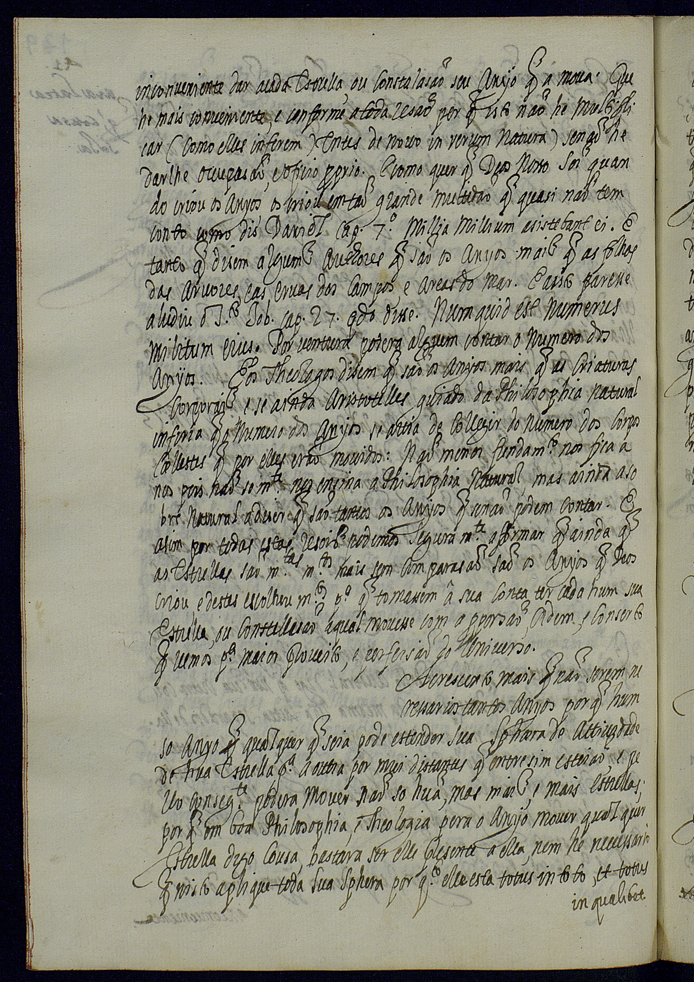 inconveniente dar acada Estrella ou Constelasaõ seu Anjo q̃ a mova. Que
he mais conveniente e conforme atoda resaõ por q̃ isto naõ he multipli
car (como elles inferem) Entes de novo in rerum Natura) senaõ he
Darlhe occupasaõ, e officio pprio. E como quer q̃ Deos Nosso Sor̃ quan
do criou os Anjos os criou em taõ grande multidaõ q̃ quasi naõ tem
conto como dis Daniel Cap. 7.º Millia Millium asistebant ei. E
tanto q̃ disem algums Auttores q̃ saõ os Anjos mais q̃ as folhas
das Arvores, eas Ervas dos Campos e Areas do Mar. E a isto parese
aludiu o S.to Job. cap. 27. qdo disse. Numquid est Numerus
Militum eius. Por ventura poderá alguem contar o numero dos
Anjos. Eos Theologos disem q̃ saõ os Anjos mais q̃ as Criaturas
Corporaes e se ainda Aristotelles guiado da Philosophia natural
inferia q̃ o Numero dos Anjos se avia de Collegir do Numero dos Corpos
Celestes q̃ por elles eraõ movidos: Naõ menor fundam.to nos fica a
nos pois naõ so m.te nos ensina a Philosophia Natural mas ainda a so
bre Natural a diser q̃ saõ tantos os Anjos q̃ se naõ podem contar. E
asim por todas estas resois podemos segura m.te afirmar q̃ ainda q̃
as Estrellas saõ m.tas m.to mais sem comparasaõ saõ os Anjos q̃ Deos
criou e destes escolheu m.tos p.ª q̃ tomasem â sua conta ter cada hum sua
Estrella, ou Constellasaõ aqual movese com o porsaõ, Ordem, e Conserto
q̃ vemos p.ª maior Proveito, e perfeisaõ do Universo.
Acrescento mais q̃ naõ serem ne
cesarios tantos Anjos por q̃ hum
so Anjo q̃ qualquer q̃ seia pode estender sua Sphera de Attividade
de hua Estrella p.ª a outra por mui distantes q̃ entre sim estejaõ, e pe
llo conseg.te podera Mover naõ so hua, mas mais e mais Estrellas;
por q̃ em boa Philosophia, e Theologia pera o Anjo mover qual quer
Estrella digo Cousa, bastara ser elle presente a ella, nem he necessario
q̃ nisto aplique toda sua Sphera por q̃ elle esta totus in toto, et totus
in qualibet